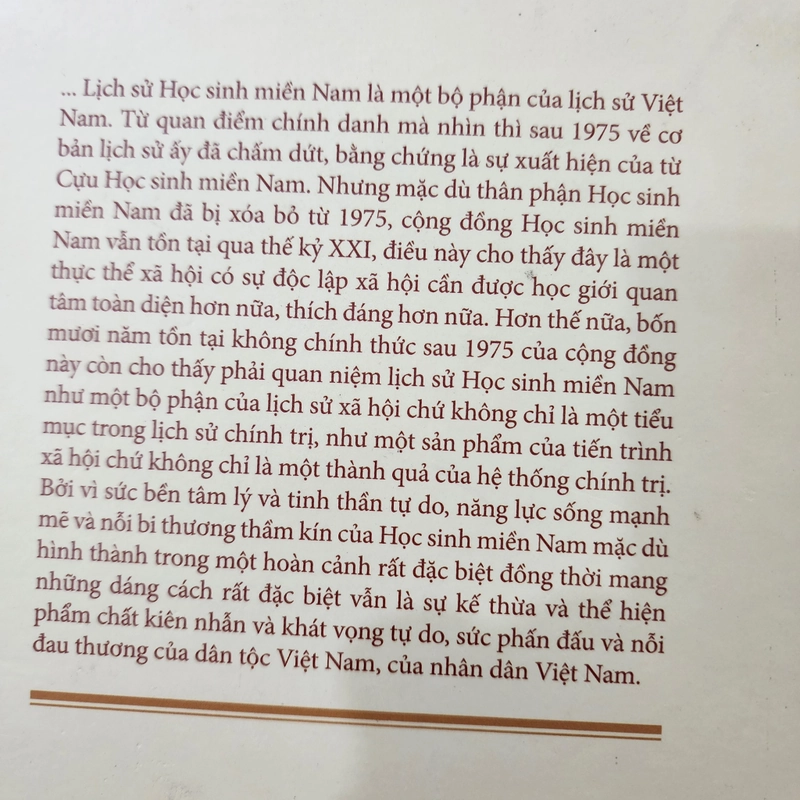 ... Lịch sử Học sinh miền Nam là một bộ phận của lịch sử Việt
Nam. Từ quan điểm chính danh mà nhìn thì sau 1975 về cơ
bản lịch sử ấy đã chấm dứt, bằng chứng là sự xuất hiện của từ
Cựu Học sinh miền Nam. Nhưng mặc dù thân phận Học sinh
miền Nam đã bị xóa bỏ từ 1975, cộng đồng Học sinh miền
Nam vẫn tồn tại qua thế kỷ XXI, điều này cho thấy đây là một
thực thể xã hội có sự độc lập xã hội cần được học giới quan
tâm toàn diện hơn nữa, thích đáng hơn nữa. Hơn thế nữa, bốn
mươi năm tồn tại không chính thức sau 1975 của cộng đồng
này còn cho thấy phải quan niệm lịch sử Học sinh miền Nam
như một bộ phận của lịch sử xã hội chứ không chỉ là một tiểu
mục trong lịch sử chính trị, như một sản phẩm của tiến trình
xã hội chứ không chỉ là một thành quả của hệ thống chính trị.
Bởi vì sức bền tâm lý và tinh thần tự do, năng lực sống mạnh
mẽ và nỗi bi thương thầm kín của Học sinh miền Nam mặc dù
hình thành trong một hoàn cảnh rất đặc biệt đồng thời mang
những dáng cách rất đặc biệt vẫn là sự kế thừa và thể hiện
phẩm chất kiên nhẫn và khát vọng tự do, sức phấn đấu và nỗi
đau thương của dân tộc Việt Nam, của nhân dân Việt Nam.